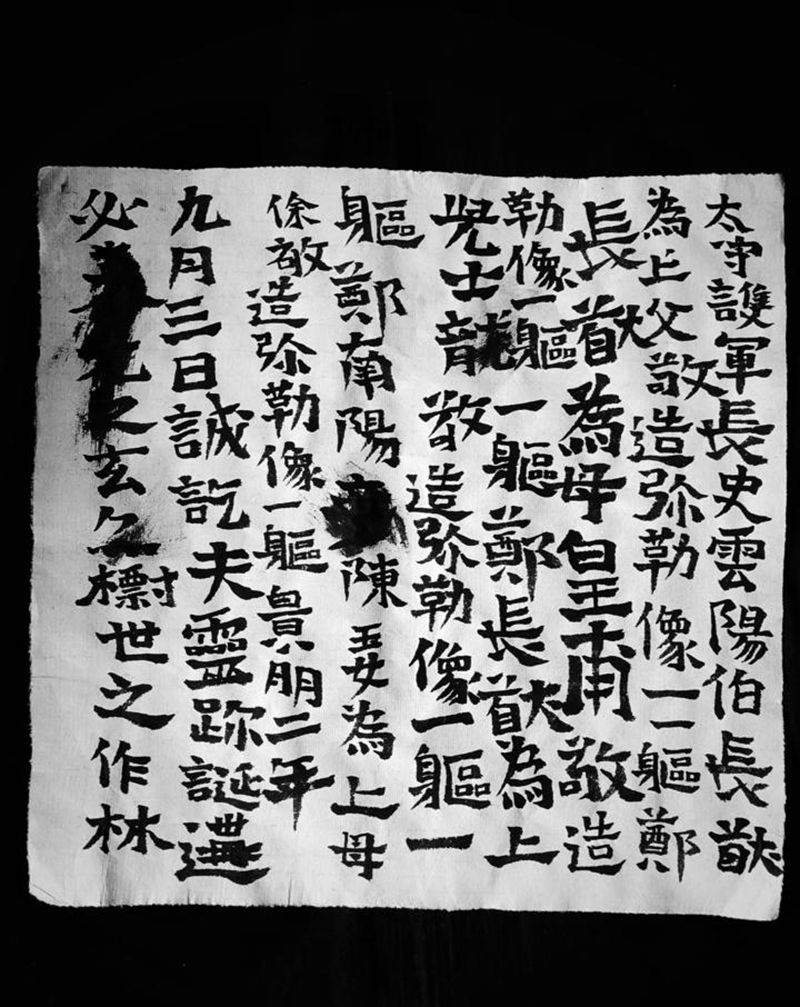 太守護軍長史雲陽伯長猷
為亡父敬造弥勒像二軀鄭
長猷為母皇甫敬造
勒像一軀一軀鄭長猷為亡
兒士龍敬造弥勒像一軀一
軀鄭南陽陳玉女為亡母
徐敬造弥勒像一軀景明二年
九月三日誠訖夫靈跡誕遘
必之玄世之作林